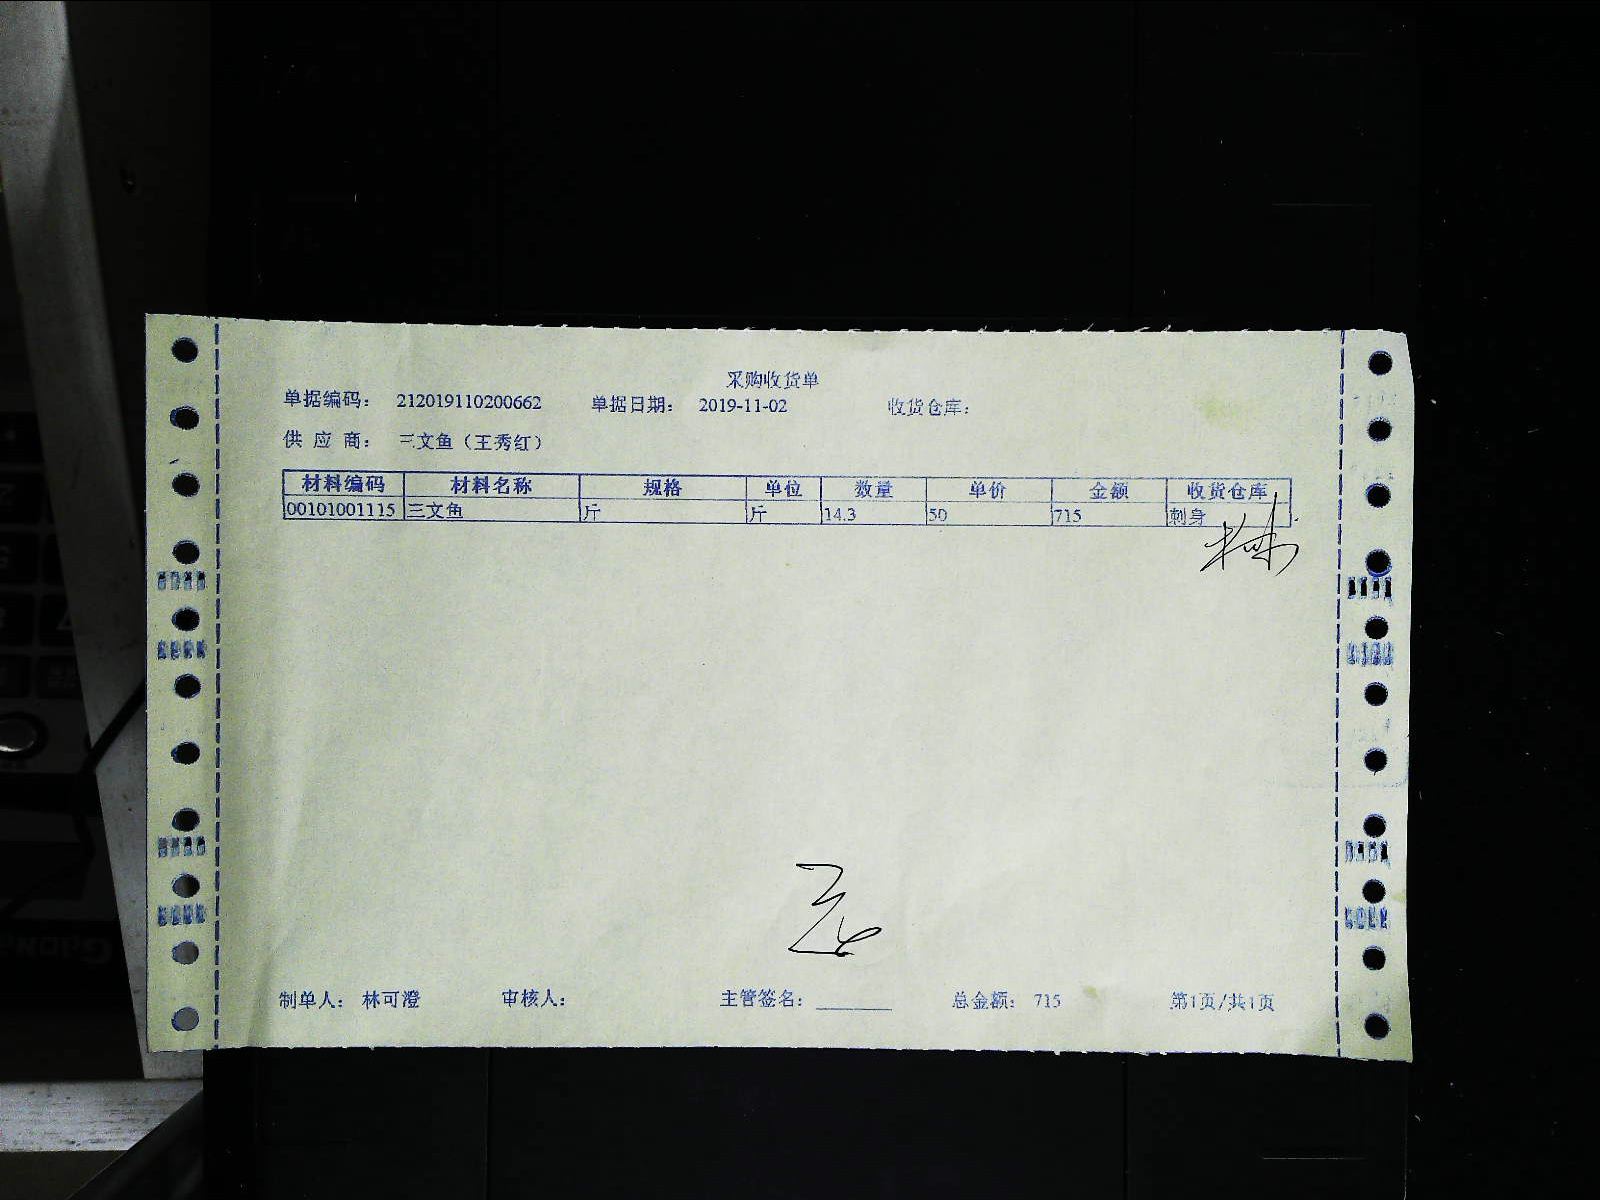 采购收货单
单据编码： 212019110200662 单据日期： 2019-11-02 收货仓库：
供 应 商： 三文鱼（王秀红）
材料编码 材料名称 规格 单位 数量 单价 金额 收货仓库
00101001115 三文鱼 斤 斤 14.3 50 715 刺身
制单人： 林可澄 审核人： 主管签名： 总金额： 715 第1页/共1页